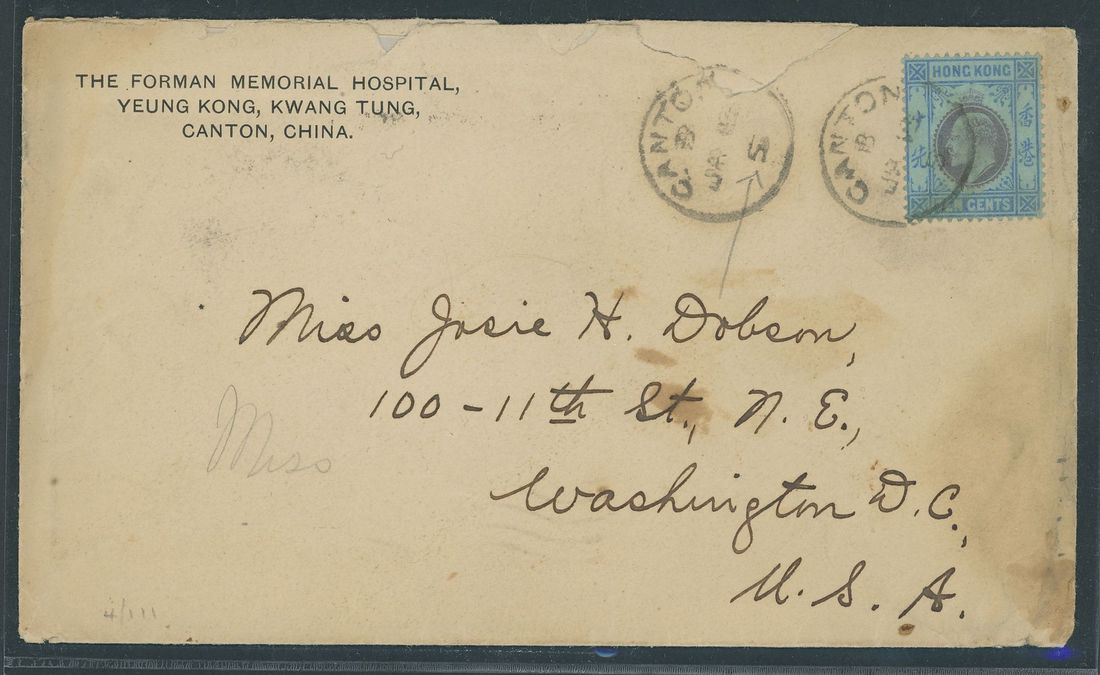 THE FORMAN MEMORIAL HOSPITAL,
YEUNG KONG, KWANG TUNG,
CANTON, CHINA.
CANTON
B
JA
5
CANTON
B
JA
HONG KONG
香港
TEN CENTS
Miss Josie H. Dobson,
100-11th St., N. E.,
Washington D.C.,
U. S. A.
Miss
4/111